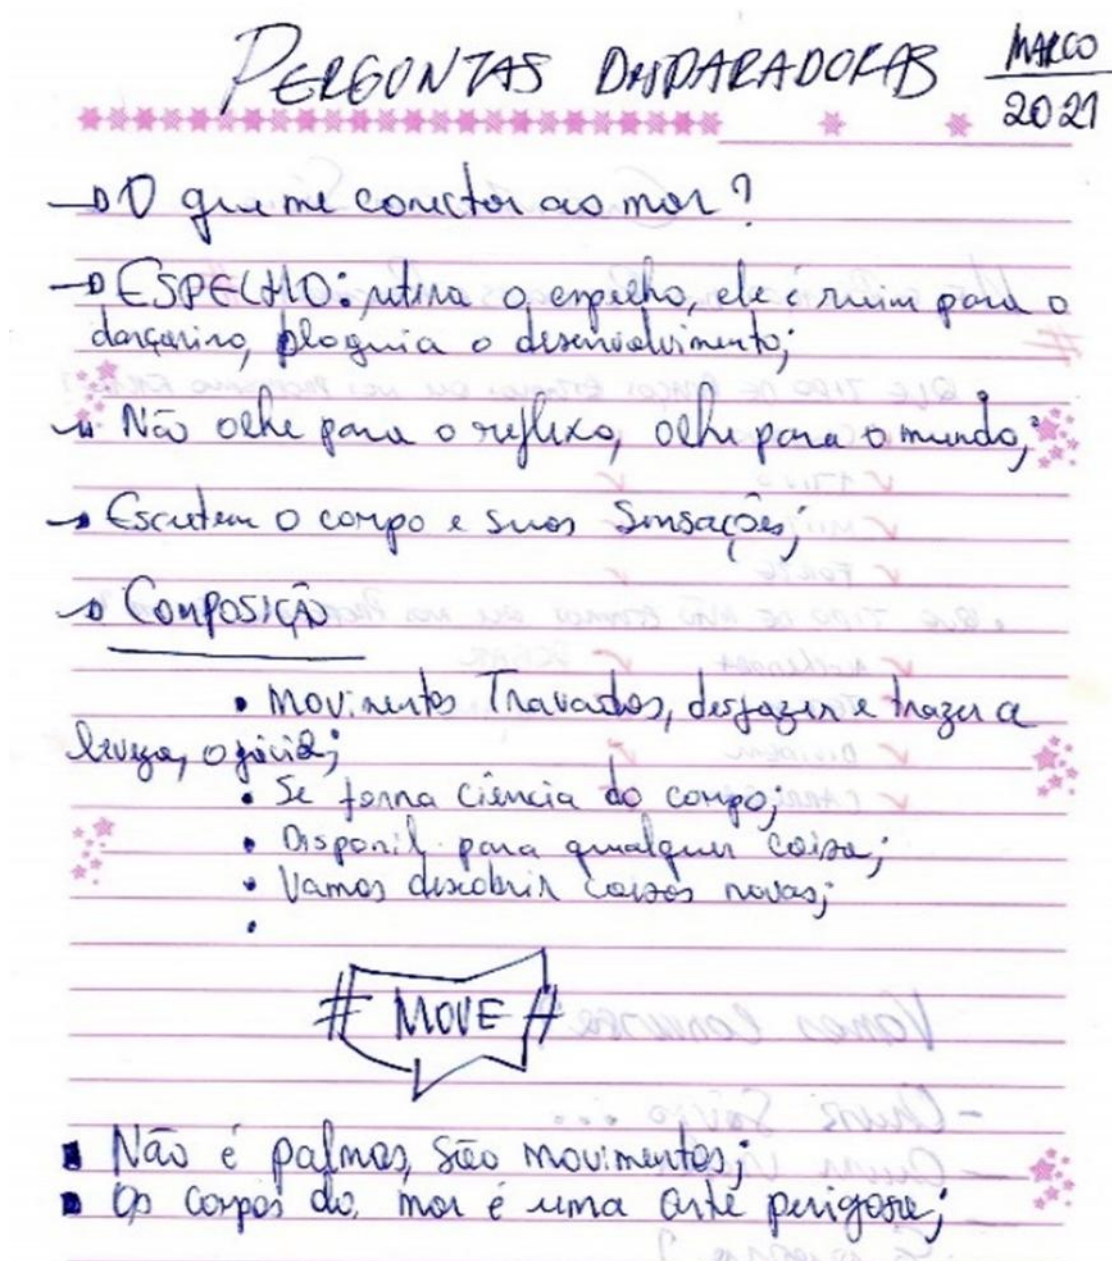 PERGUNTAS DISPARADORAS
MARCO
2021
O que me conector ao mar?
ESPELHO: retira o espelho, ele é ruim para o
dançarino, bloquia o desenvolvimento;
Não olhe para o reflexo, olhe para o mundo;
Escutem o corpo e suas Sensações;
COMPOSIÇÃO
• Movimentos Travados, desfazer e trazer a
leveza, o fácil;
• Se torna Ciência do corpo;
• Disponil para qualquer coisa;
• Vamos descobrir coisas novas;
•
# MOVE #
Não é palmas, são movimentos;
Os corpos do mar é uma arte perigosa;